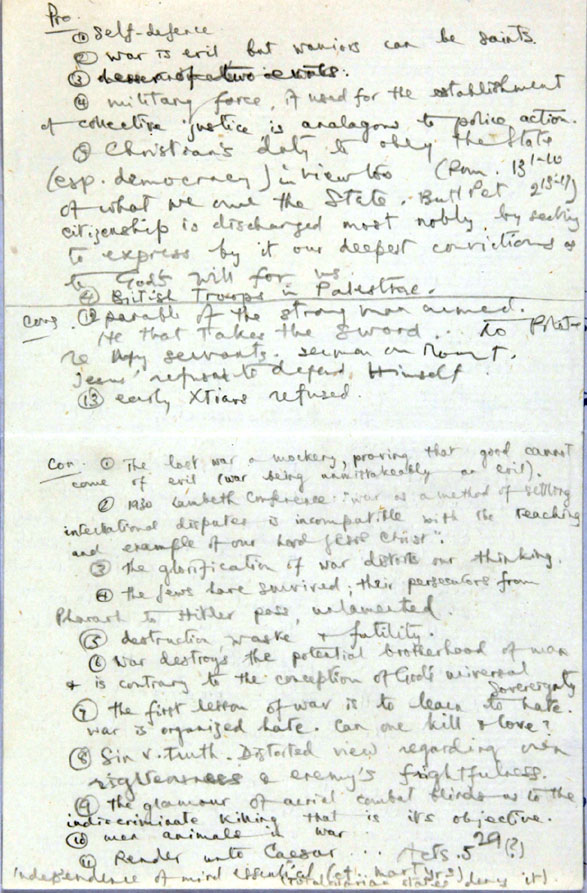 Pro.
① Self-defence
② war is evil but warriors can be saints.
③ lesser of two evils.
④ military force, if used for the establishment
of collective justice, is analagous to police action.
⑤ Christian's duty to obey the State
(esp. democracy) in view too (Rom. 13 1-10
of what we owe the State. But 1 Pet 2 13-17)
citizenship is discharged most nobly by seeking
to express by it our deepest convictions as
to God's will for us.
British Troops in Palestine.
Cons. ⑫ parable of the strong man armed.
He that takes the sword... to Pilate
re My servants. Sermon on Mount.
Jesus' refusal to defend Himself
⑬ early Xtians refused.
Con. ① The last war a mockery, proving that good cannot
come of evil (war being unmistakeably an evil).
② 1930 Lambeth Conference: "war as a method of settling
international disputes is incompatible with the teaching
and example of our Lord Jesus Christ".
③ the glorification of war distorts our thinking.
④ the Jews have survived; their persecutors from
Pharaoh to Hitler pass, unlamented.
⑤ destruction, waste & futility.
⑥ War destroys the potential brotherhood of man
& is contrary to the conception of God's universal
Sovereignty
⑦ the first lesson of war is to learn to hate.
War is organized hate. Can one kill & love?
⑧ Sin v. truth. Distorted view regarding own
righteousness & enemy's frightfulness.
⑨ the glamour of aerial combat blinds us to the
indiscriminate killing that is its objective.
⑩ men animals in war
⑪ Render unto Caesar... Acts. 5 29 (?)
independence of mind essential (cf. martyrs)
(totalitarian states deny it).